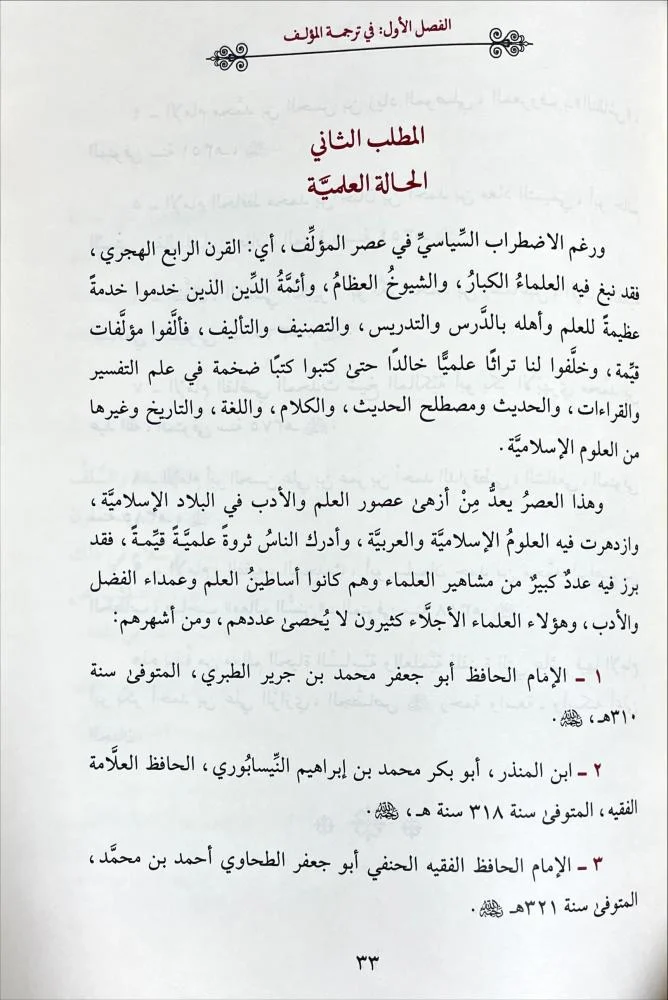 الفصل الأول: في ترجمة المؤلف
المطلب الثاني
الحالة العلميَّة
ورغم الاضطراب السِّياسيِّ في عصر المؤلِّف، أي: القرن الرابع الهجري،
فقد نبغ فيه العلماءُ الكبارُ، والشيوخُ العظامُ، وأئمَّةُ الدِّين الذين خدموا خدمةً
عظيمةً للعلم وأهله بالدَّرس والتدريس، والتصنيف والتأليف، فألَّفوا مؤلَّفات
قيِّمة، وخلَّفوا لنا تراثًا علميًّا خالدًا حتىٰ كتبوا كتبًا ضخمة في علم التفسير
والقراءات، والحديث ومصطلح الحديث، والكلام، واللغة، والتاريخ وغيرها
من العلوم الإسلاميَّة.
وهذا العصرُ يعدُّ مِنْ أزهىٰ عصور العلم والأدب في البلاد الإسلاميَّة،
وازدهرت فيه العلومُ الإسلاميَّة والعربيَّة، وأدرك الناسُ ثروةً علميَّةً قيِّمةً، فقد
برز فيه عددٌ كبيرٌ من مشاهير العلماء وهم كانوا أساطينُ العلم وعمداء الفضل
والأدب، وهؤلاء العلماء الأجلَّاء كثيرون لا يُحصىٰ عددهم، ومن أشهرهم:
١ ـ الإمام الحافظ أبو جعفر محمد بن جرير الطبري، المتوفىٰ سنة
٣١٠هـ، رحمه الله.
٢ ـ ابن المنذر، أبو بكر محمد بن إبراهيم النِّيسابُوري، الحافظ العلَّامة
الفقيه، المتوفىٰ سنة ٣١٨ سنة هـ، رحمه الله.
٣ ـ الإمام الحافظ الفقيه الحنفي أبو جعفر الطحاوي أحمد بن محمَّد،
المتوفىٰ سنة ٣٢١هـ رحمه الله.
٣٣